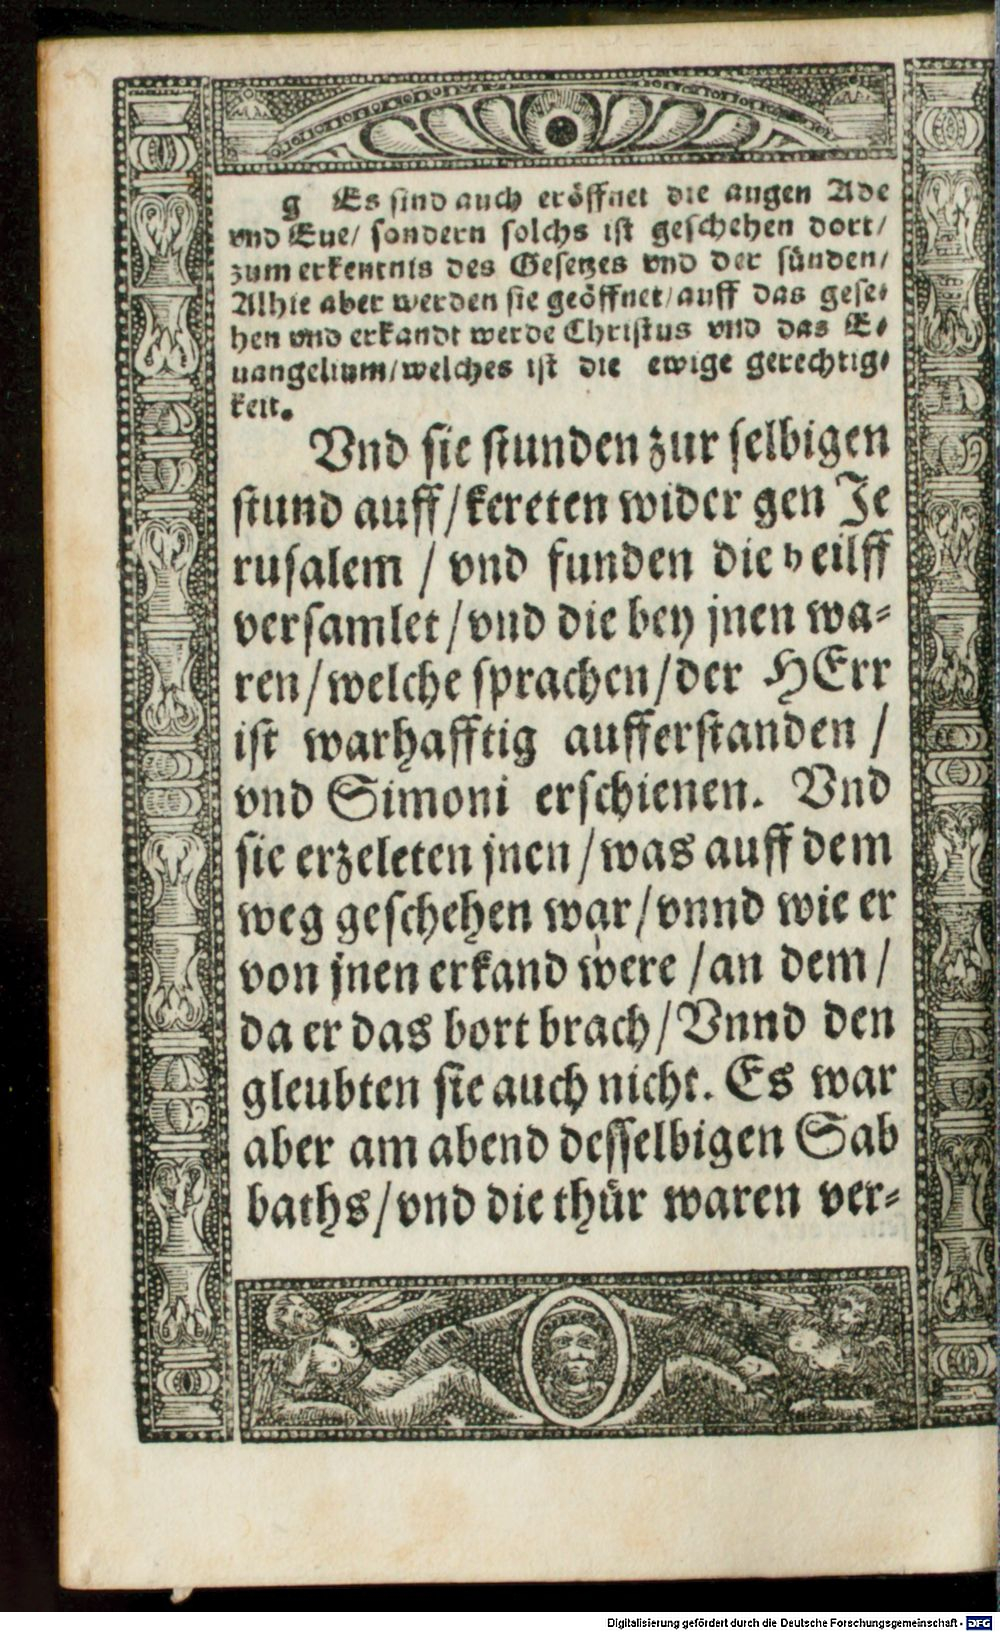 g Es sind auch eröffnet die augen Ade
vnd Eue/ sondern solchs ist geschehen dort/
zum erkentnis des Gesetzes vnd der sünden/
Alhie aber werden sie geöffnet/auff das gese-
hen vnd erkandt werde Christus vnd das E-
uangelium/welches ist die ewige gerechtig-
keit.
Vnd sie stunden zur selbigen
stund auff/kereten wider gen Je
rusalem / vnd funden die h eilff
versamlet/vnd die bey jnen wa-
ren/welche sprachen/der HErr
ist warhafftig aufferstanden /
vnd Simoni erschienen. Vnd
sie erzeleten jnen/was auff dem
weg geschehen war/vnnd wie er
von jnen erkand were /an dem/
da er das bort brach/Vnnd den
gleubten sie auch nicht. Es war
aber am abend desselbigen Sab
baths/vnd die thür waren ver-
Digitalisierung gefördert durch die Deutsche Forschungsgemeinschaft - DFG